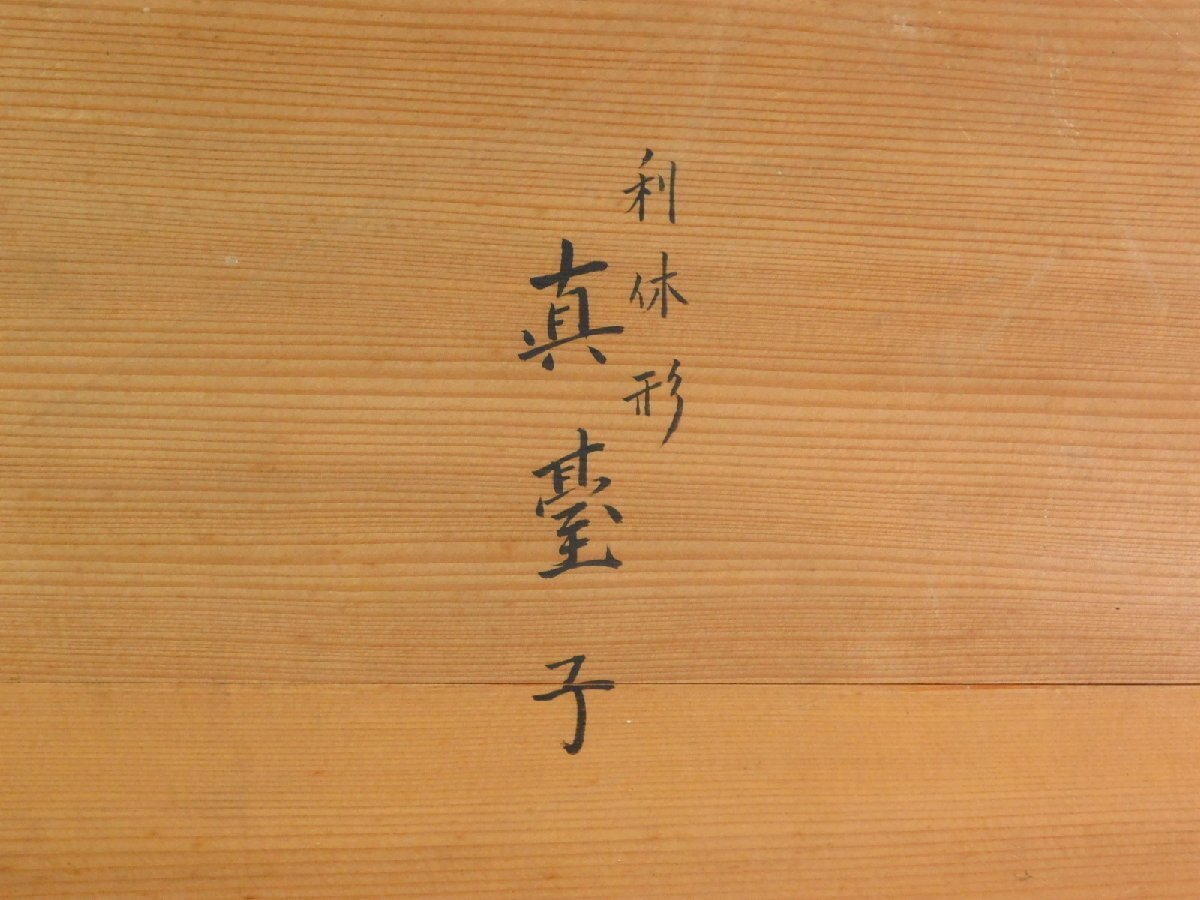 利休形
真臺子